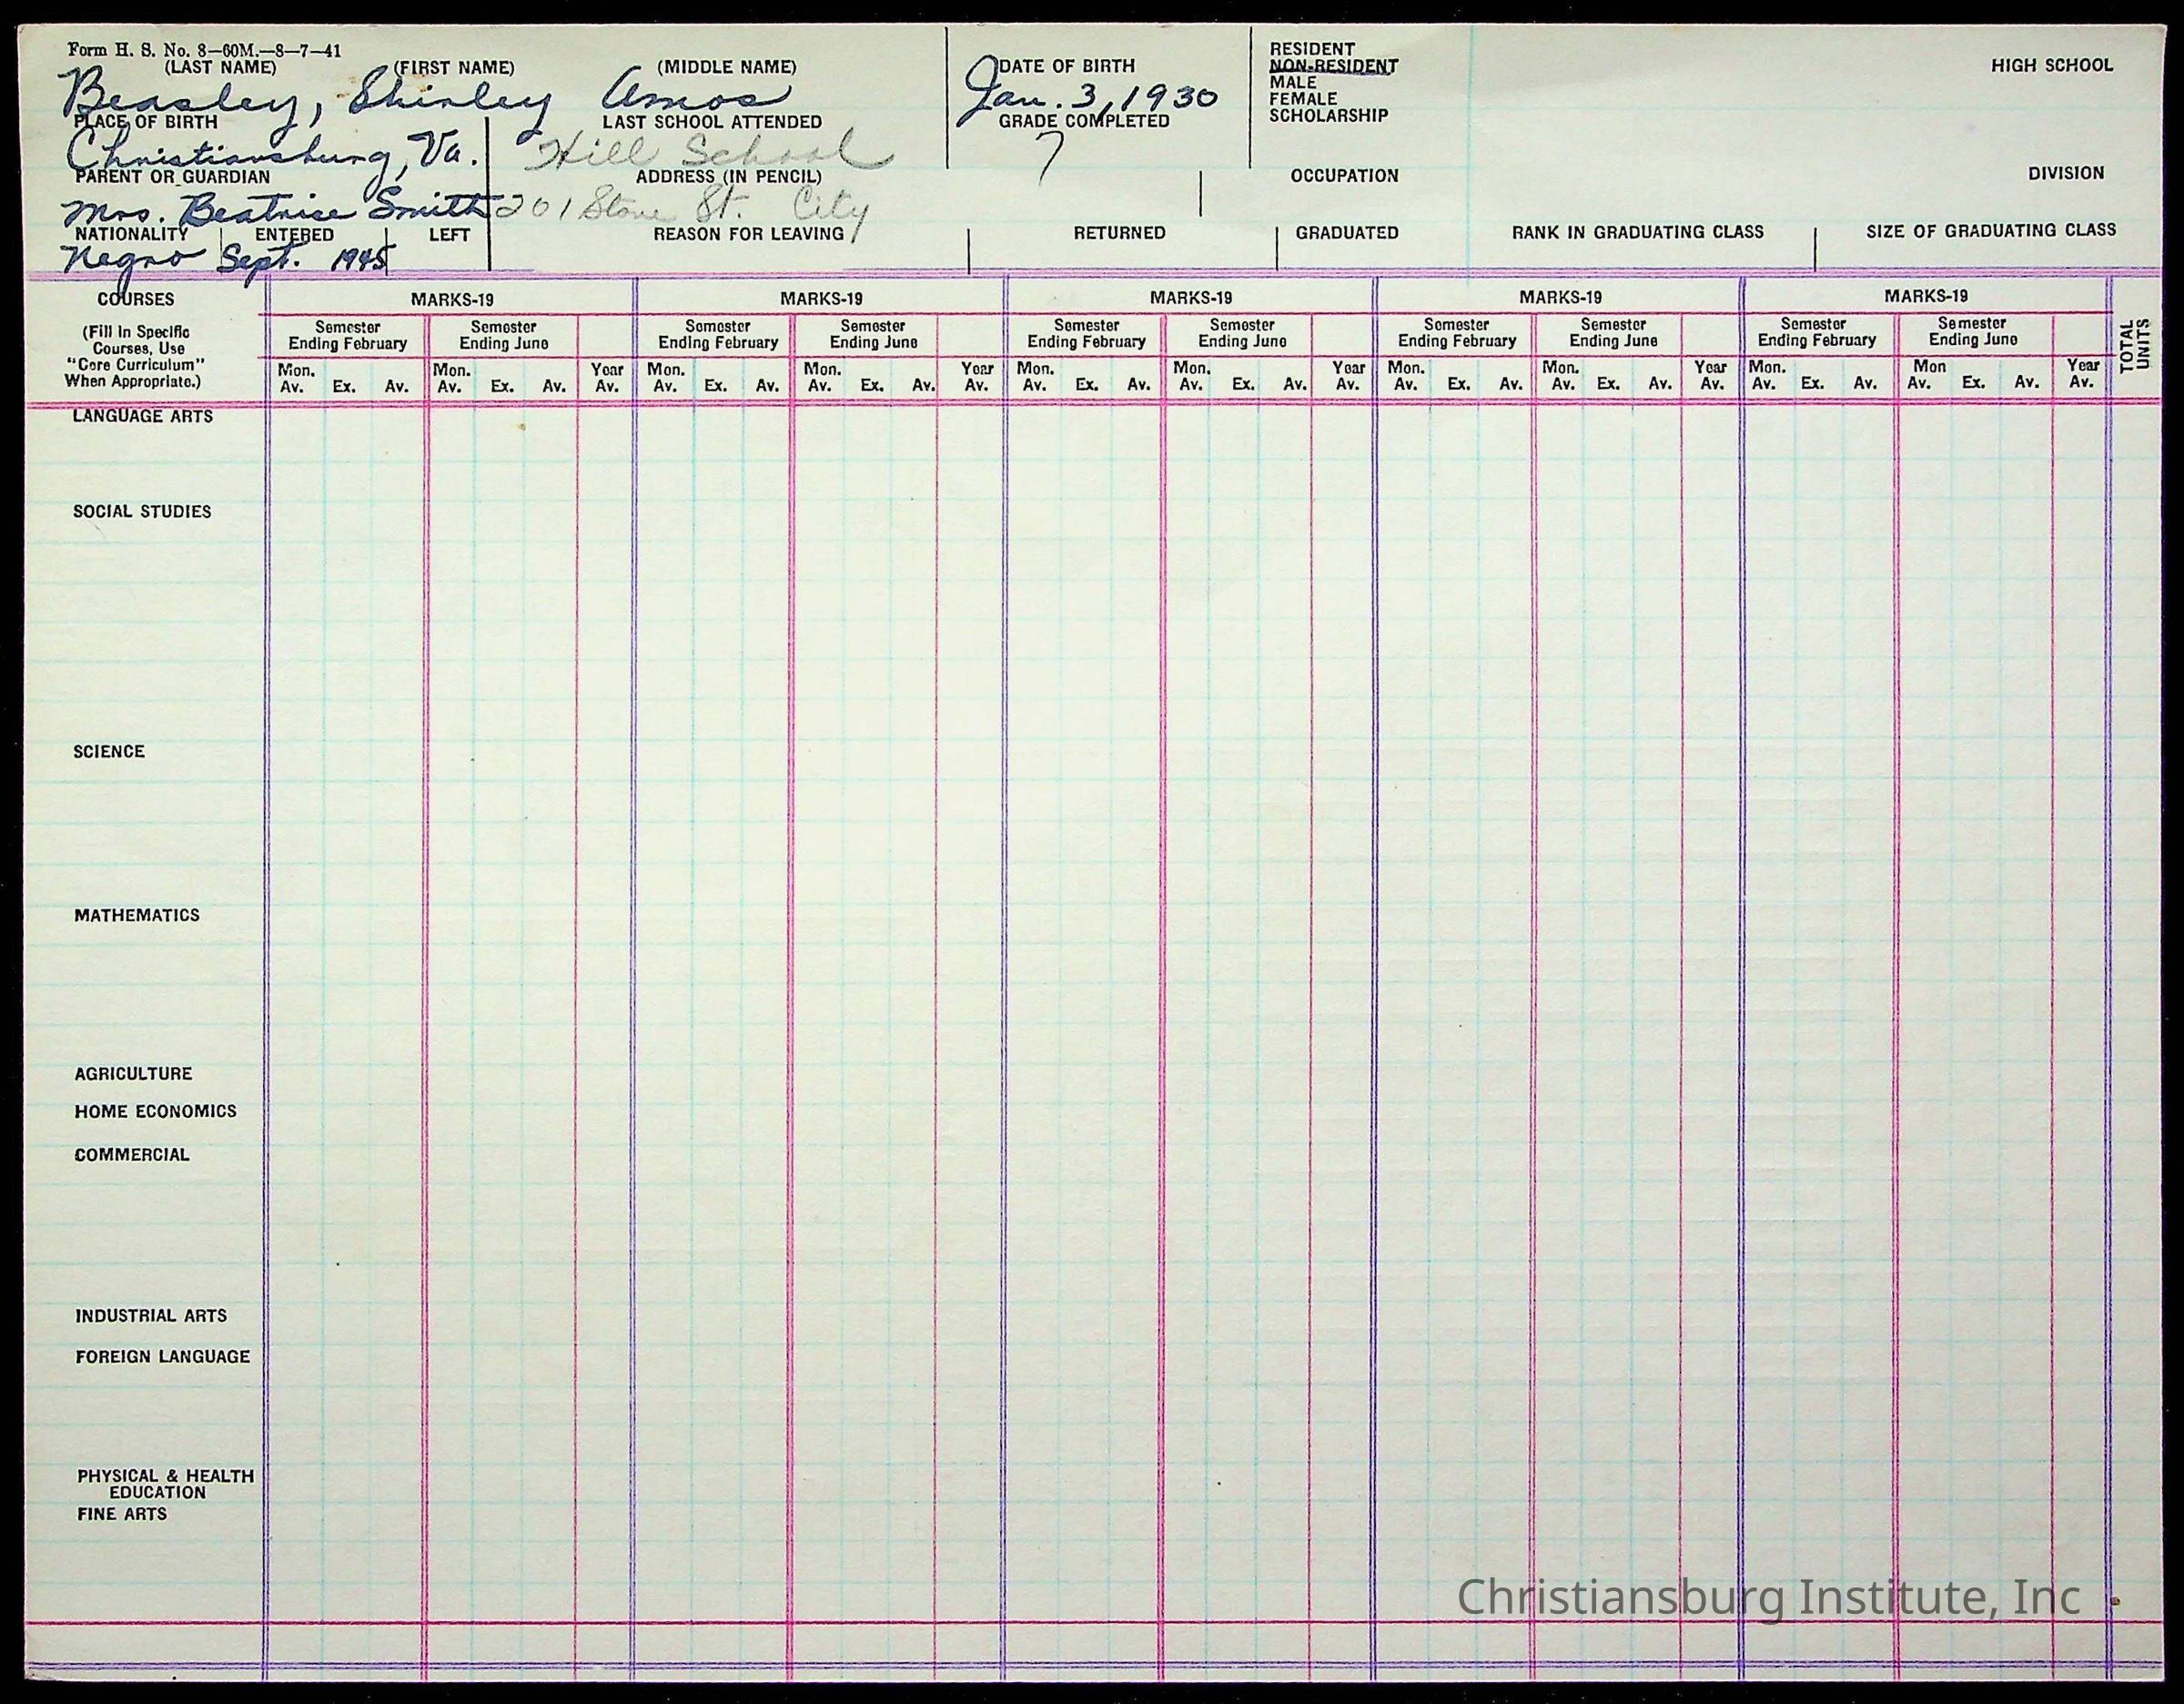 Form H. S. No. 8—60M.—8—7—41
(LAST NAME) (FIRST NAME) (MIDDLE NAME) DATE OF BIRTH RESIDENT HIGH SCHOOL
NON-RESIDENT
MALE
Beasley, Shirley Amos Jan. 3, 1930 FEMALE
PLACE OF BIRTH LAST SCHOOL ATTENDED GRADE COMPLETED SCHOLARSHIP
Christiansburg, Va. Hill School 7
PARENT OR GUARDIAN ADDRESS (IN PENCIL) OCCUPATION DIVISION
Mrs. Beatrice Smith 201 Stone St. City
NATIONALITY ENTERED LEFT REASON FOR LEAVING RETURNED GRADUATED RANK IN GRADUATING CLASS SIZE OF GRADUATING CLASS
Negro Sept. 1945
COURSES MARKS-19 MARKS-19 MARKS-19 MARKS-19 MARKS-19 TOTAL UNITS
(Fill In Specific Semester Semester Semester Semester Semester Semester Semester Semester Semester Semester
Courses, Use Ending February Ending June Ending February Ending June Ending February Ending June Ending February Ending June Ending February Ending June
"Core Curriculum" Mon. Mon. Year Mon. Mon. Year Mon. Mon. Year Mon. Mon. Year Mon. Mon Year
When Appropriate.) Av. Ex. Av. Av. Ex. Av. Av. Av. Ex. Av. Av. Ex. Av. Av. Av. Ex. Av. Av. Ex. Av. Av. Av. Ex. Av. Av. Ex. Av. Av. Av. Ex. Av. Av. Ex. Av. Av.
LANGUAGE ARTS
SOCIAL STUDIES
SCIENCE
MATHEMATICS
AGRICULTURE
HOME ECONOMICS
COMMERCIAL
INDUSTRIAL ARTS
FOREIGN LANGUAGE
PHYSICAL & HEALTH
EDUCATION
FINE ARTS
Christiansburg Institute, Inc